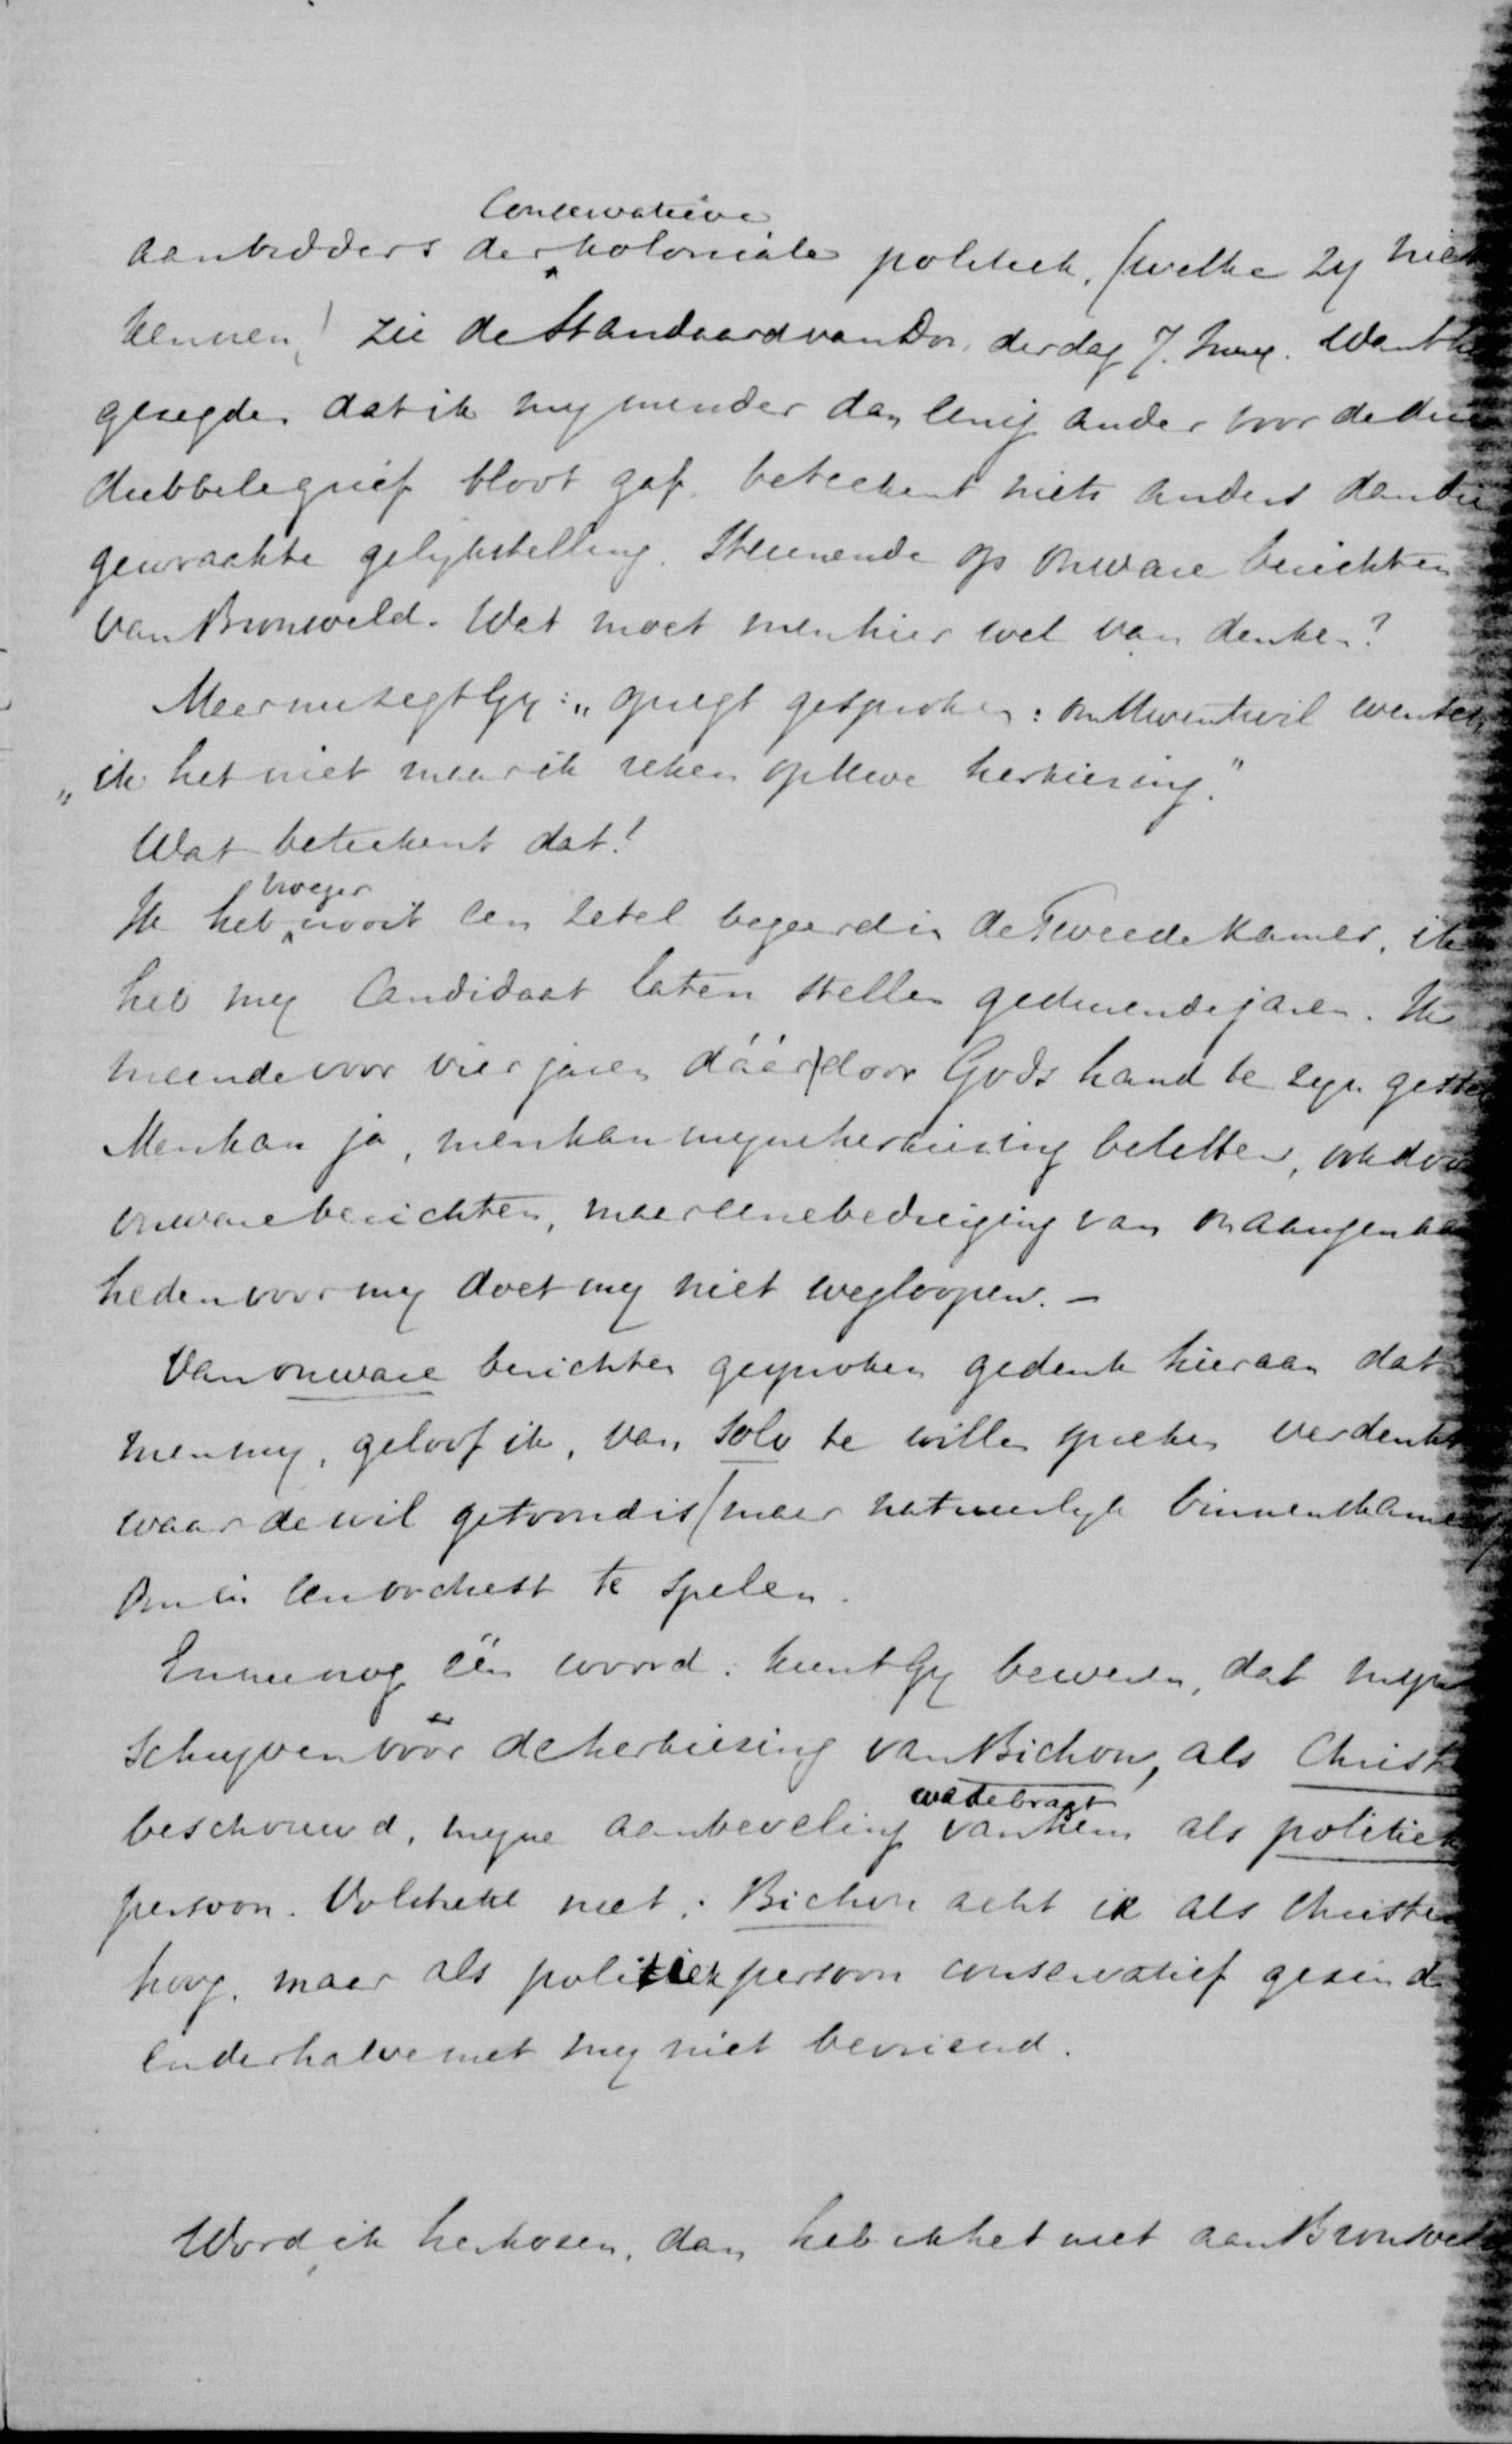 Conservatieve
aanbidders der koloniale politiek, (welke zy niet
kennen! zie de Standaard van Donderdag 7. Juny. Want
gezegde, dat ik my minder dan eenig ander voor de
dubbele grief bloot gaf, beteekent niets anders dan die
gewraakte gelykstelling. Steunende op onware berichten
van Bronsveld. Wat moet men hier wel van denken?
Maar nu zegt Gy: „opregt gesproken: om Uwentwil wensch
„ik het niet maar ik reken op Uwe herkiezing."
Wat beteekent dat!
vroeger
Ik heb nooit een zetel begeerd in de Tweede Kamer, ik
heb my Candidaat laten stellen gedurende jaren. Ik
meende voor vier jaren dáár door Gods hand te zyn
Men kan ja, men kan myne herkiezing beletten, ook door
onware berichten, maar eene bedreiging van onaangenaam
heden voor my doet my niet wegloopen. —
Van onware berichten gesproken gedenk hieraan dat
men my, geloof ik, van solo te willen spreken verdenkt
waar de wil getoond is (maar natuurlyk binnenskamers)
om in een orchest te spelen.
En nu nog één woord: kunt Gy beweren, dat myn
schryven vóór de herkiezing van Bichon, als Christen
beschouwd, myne aanbeveling van hem als politiek
persoon. Volstrekt niet: Bichon acht ik als Christen
hoog, maar als politiek persoon conservatief gezind
en derhalve met my niet bevriend.
Word ik herkozen, dan heb ik het niet aan Bronsveld